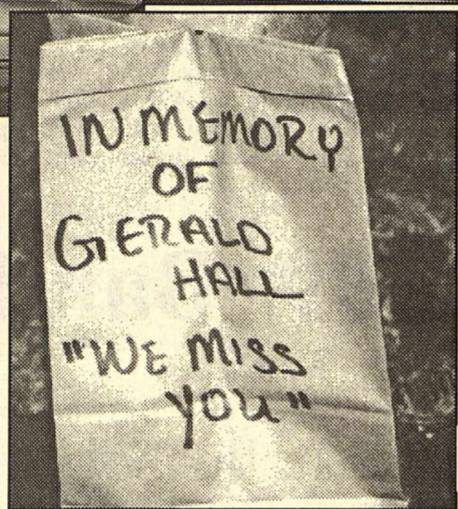 IN MEMORY
OF
GERALD
HALL
"WE MISS
YOU"